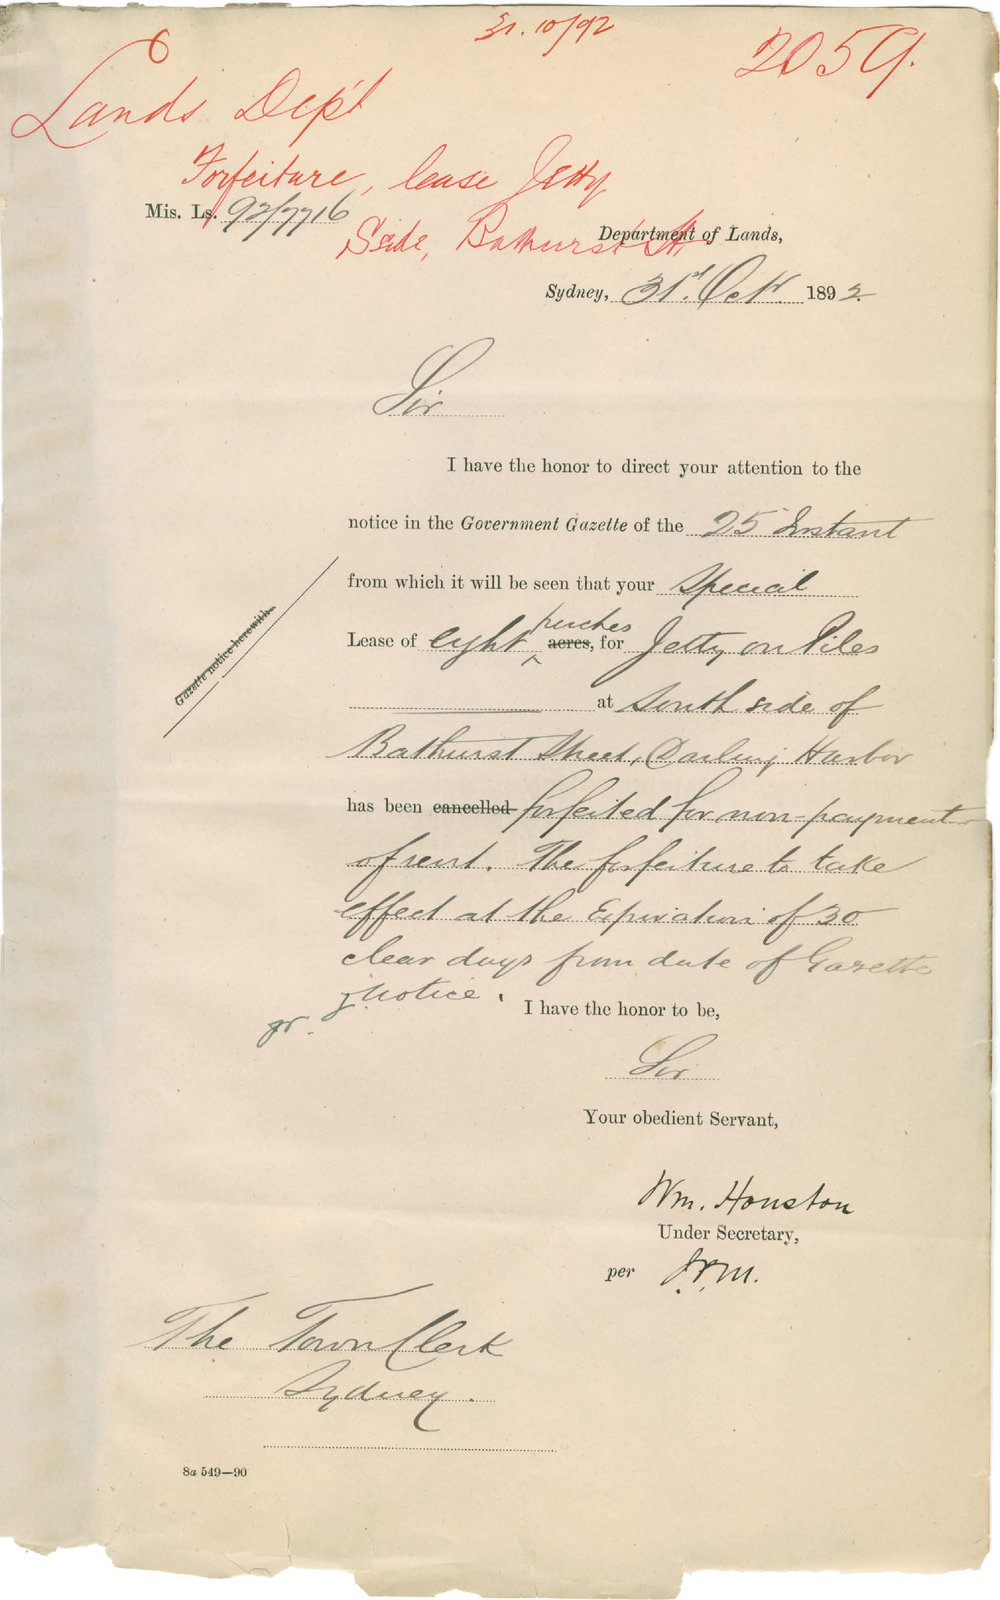 31.10/92
2059.
6
Lands Dep't
Forfeiture, lease Jetty
Mis. Ls. 92/7716
S side, Bathurst St
Department of Lands,
Sydney, 31st Oct 1892
Sir
I have the honor to direct your attention to the
notice in the Government Gazette of the 25 Instant
from which it will be seen that your Special
Gazette notice herewith
perches
Lease of eight acres, for Jetty on Piles
at South side of
Bathurst Street, Darling Harbor
has been cancelled forfeited for non-payment
of rent. The forfeiture to take
effect at the Expiration of 30
clear days from date of Gazette
notice.
I have the honor to be,
Sir
Your obedient Servant,
Wm. Houston
Under Secretary,
per
The Town Clerk
Sydney.
8a 549—90